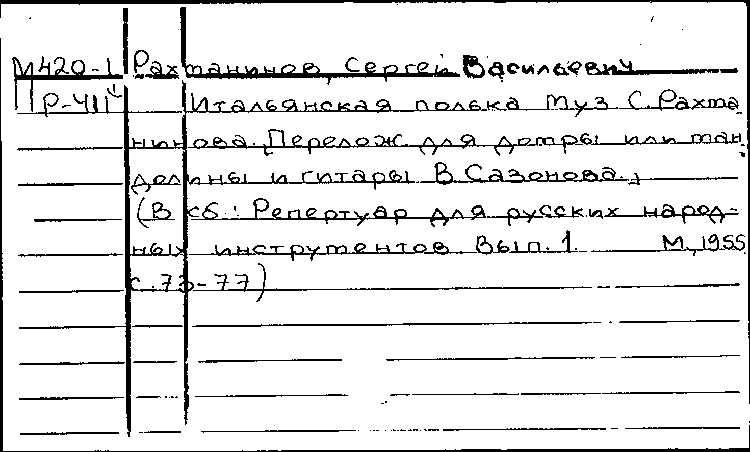 М420-1 Рахманинов, Сергей Васильевич
Р-411 Итальянская полька Муз С. Рахма
нинова. [Перелож для домры или ман
долины и гитары В. Сазонова.]
(В сб.: Репертуар для русских народ-
ных инструментов. Вып. 1. М., 1955
с. 73-77)